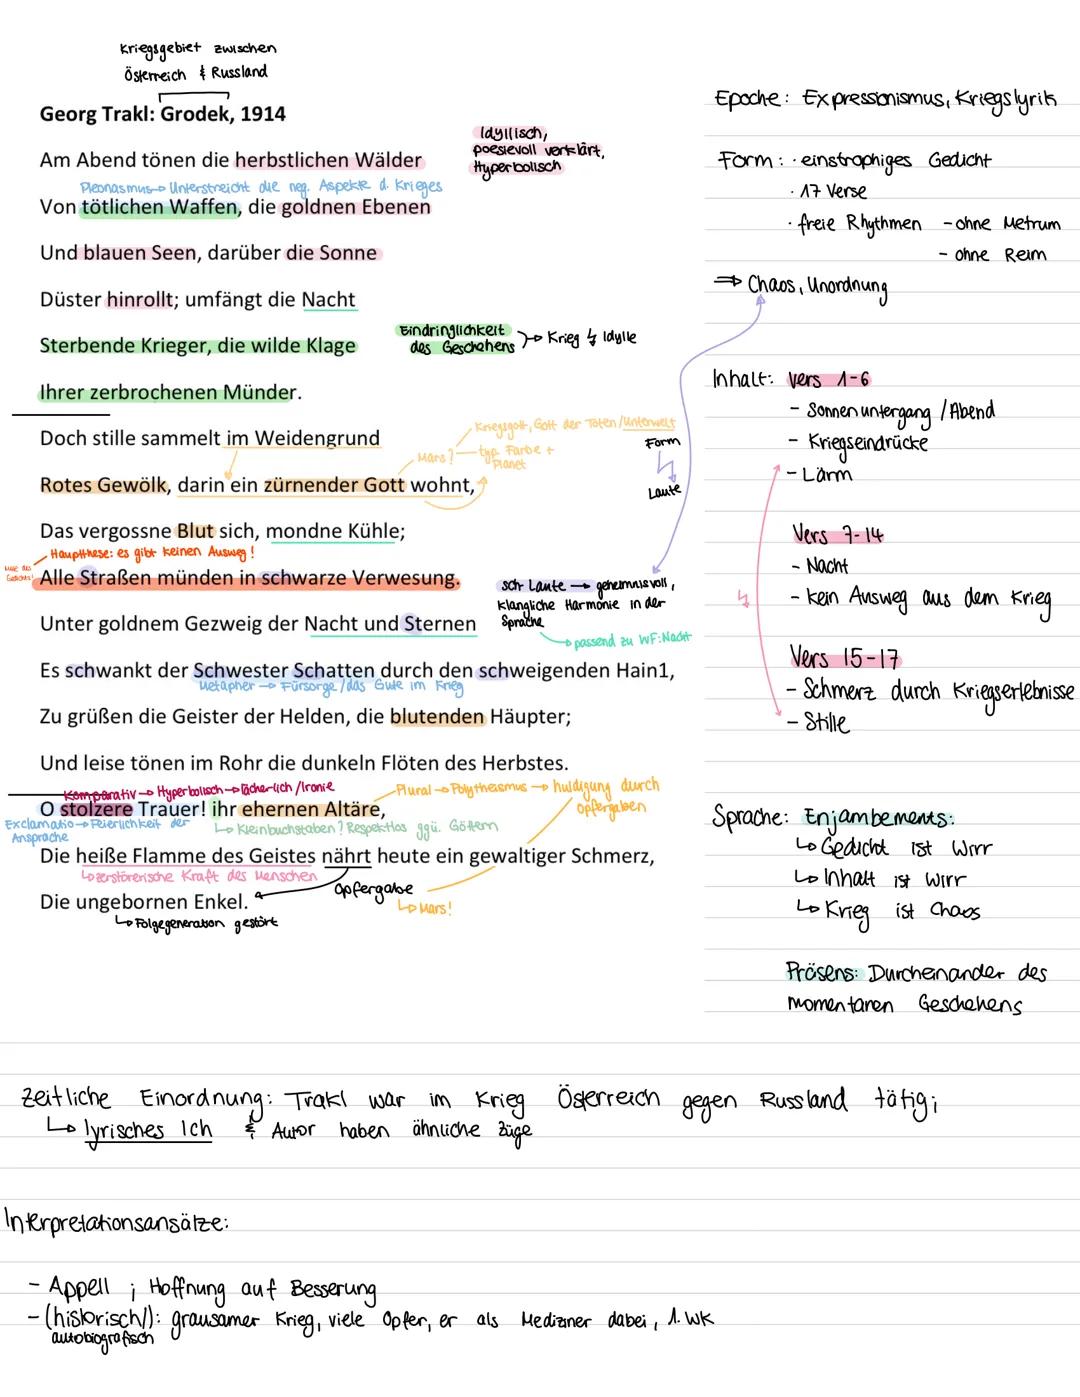 Kriegsgebiet zwischen
Österreich & Russland
Georg Trakl: Grodek, 1914
Am Abend tönen die herbstlichen Wälder
Idyllisch,
poesievoll verklärt,
Hyperbolisch
Pleonasmus → Unterstreicht die neg. Aspekte d. Krieges
Von tötlichen Waffen, die goldnen Ebenen
Und blauen Seen, darüber die Sonne
Düster hinrollt; umfängt die Nacht
Sterbende Krieger, die wilde Klage
Eindringlichkeit
des Geschehens
→ Krieg ↯ Idylle
Ihrer zerbrochenen Münder.
Doch stille sammelt im Weidengrund
Mars?
Kriegsgott, Gott der Toten/Unterwelt
typ. Farbe +
Planet
Rotes Gewölk, darin ein zürnender Gott wohnt,
Form
↯
Laute
Das vergossne Blut sich, mondne Kühle;
Haupthese: es gibt keinen Ausweg!
Mitte des
Gedichts!
Alle Straßen münden in schwarze Verwesung.
sch Laute → geheimnisvoll,
klangliche Harmonie in der
Sprache
→ passend zu WF: Nacht
Unter goldnem Gezweig der Nacht und Sternen
Es schwankt der Schwester Schatten durch den schweigenden Hain1,
Metapher → Fürsorge/das Gute im Krieg
Zu grüßen die Geister der Helden, die blutenden Häupter;
Und leise tönen im Rohr die dunkeln Flöten des Herbstes.
Komparativ → Hyperbolisch → lächerlich/Ironie
Plural → Polytheismus → huldigung durch
opfergaben
O stolzere Trauer! ihr ehernen Altäre,
Exclamatio → Feierlichkeit der
Ansprache
↳ Kleinbuchstaben? Respektlos ggü. Göttern
Die heiße Flamme des Geistes nährt heute ein gewaltiger Schmerz,
↳ zerstörerische Kraft des Menschen
opfergabe
↳ Mars!
Die ungebornen Enkel.
↳ Folgegeneration gestört
Epoche: Expressionismus, Kriegslyrik
Form: · einstrophiges Gedicht
· 17 Verse
· freie Rhythmen - ohne Metrum
- ohne Reim
⇒ Chaos, Unordnung
Inhalt: Vers 1-6
- Sonnenuntergang / Abend
- Kriegseindrücke
- Lärm
Vers 7-14
- Nacht
- kein Ausweg aus dem Krieg
↯
Vers 15-17
- Schmerz durch Kriegserlebnisse
- Stille
Sprache: Enjambements:
↳ Gedicht ist Wirr
↳ Inhalt ist wirr
↳ Krieg ist Chaos
Präsens: Durcheinander des
momentanen Geschehens
Zeitliche Einordnung: Trakl war im Krieg Österreich gegen Russland tätig;
↳ lyrisches Ich & Autor haben ähnliche Züge
Interpretationsansätze:
- Appell ; Hoffnung auf Besserung
- (historisch/): grausamer Krieg, viele Opfer, er als Mediziner dabei, 1. WK
autobiografisch